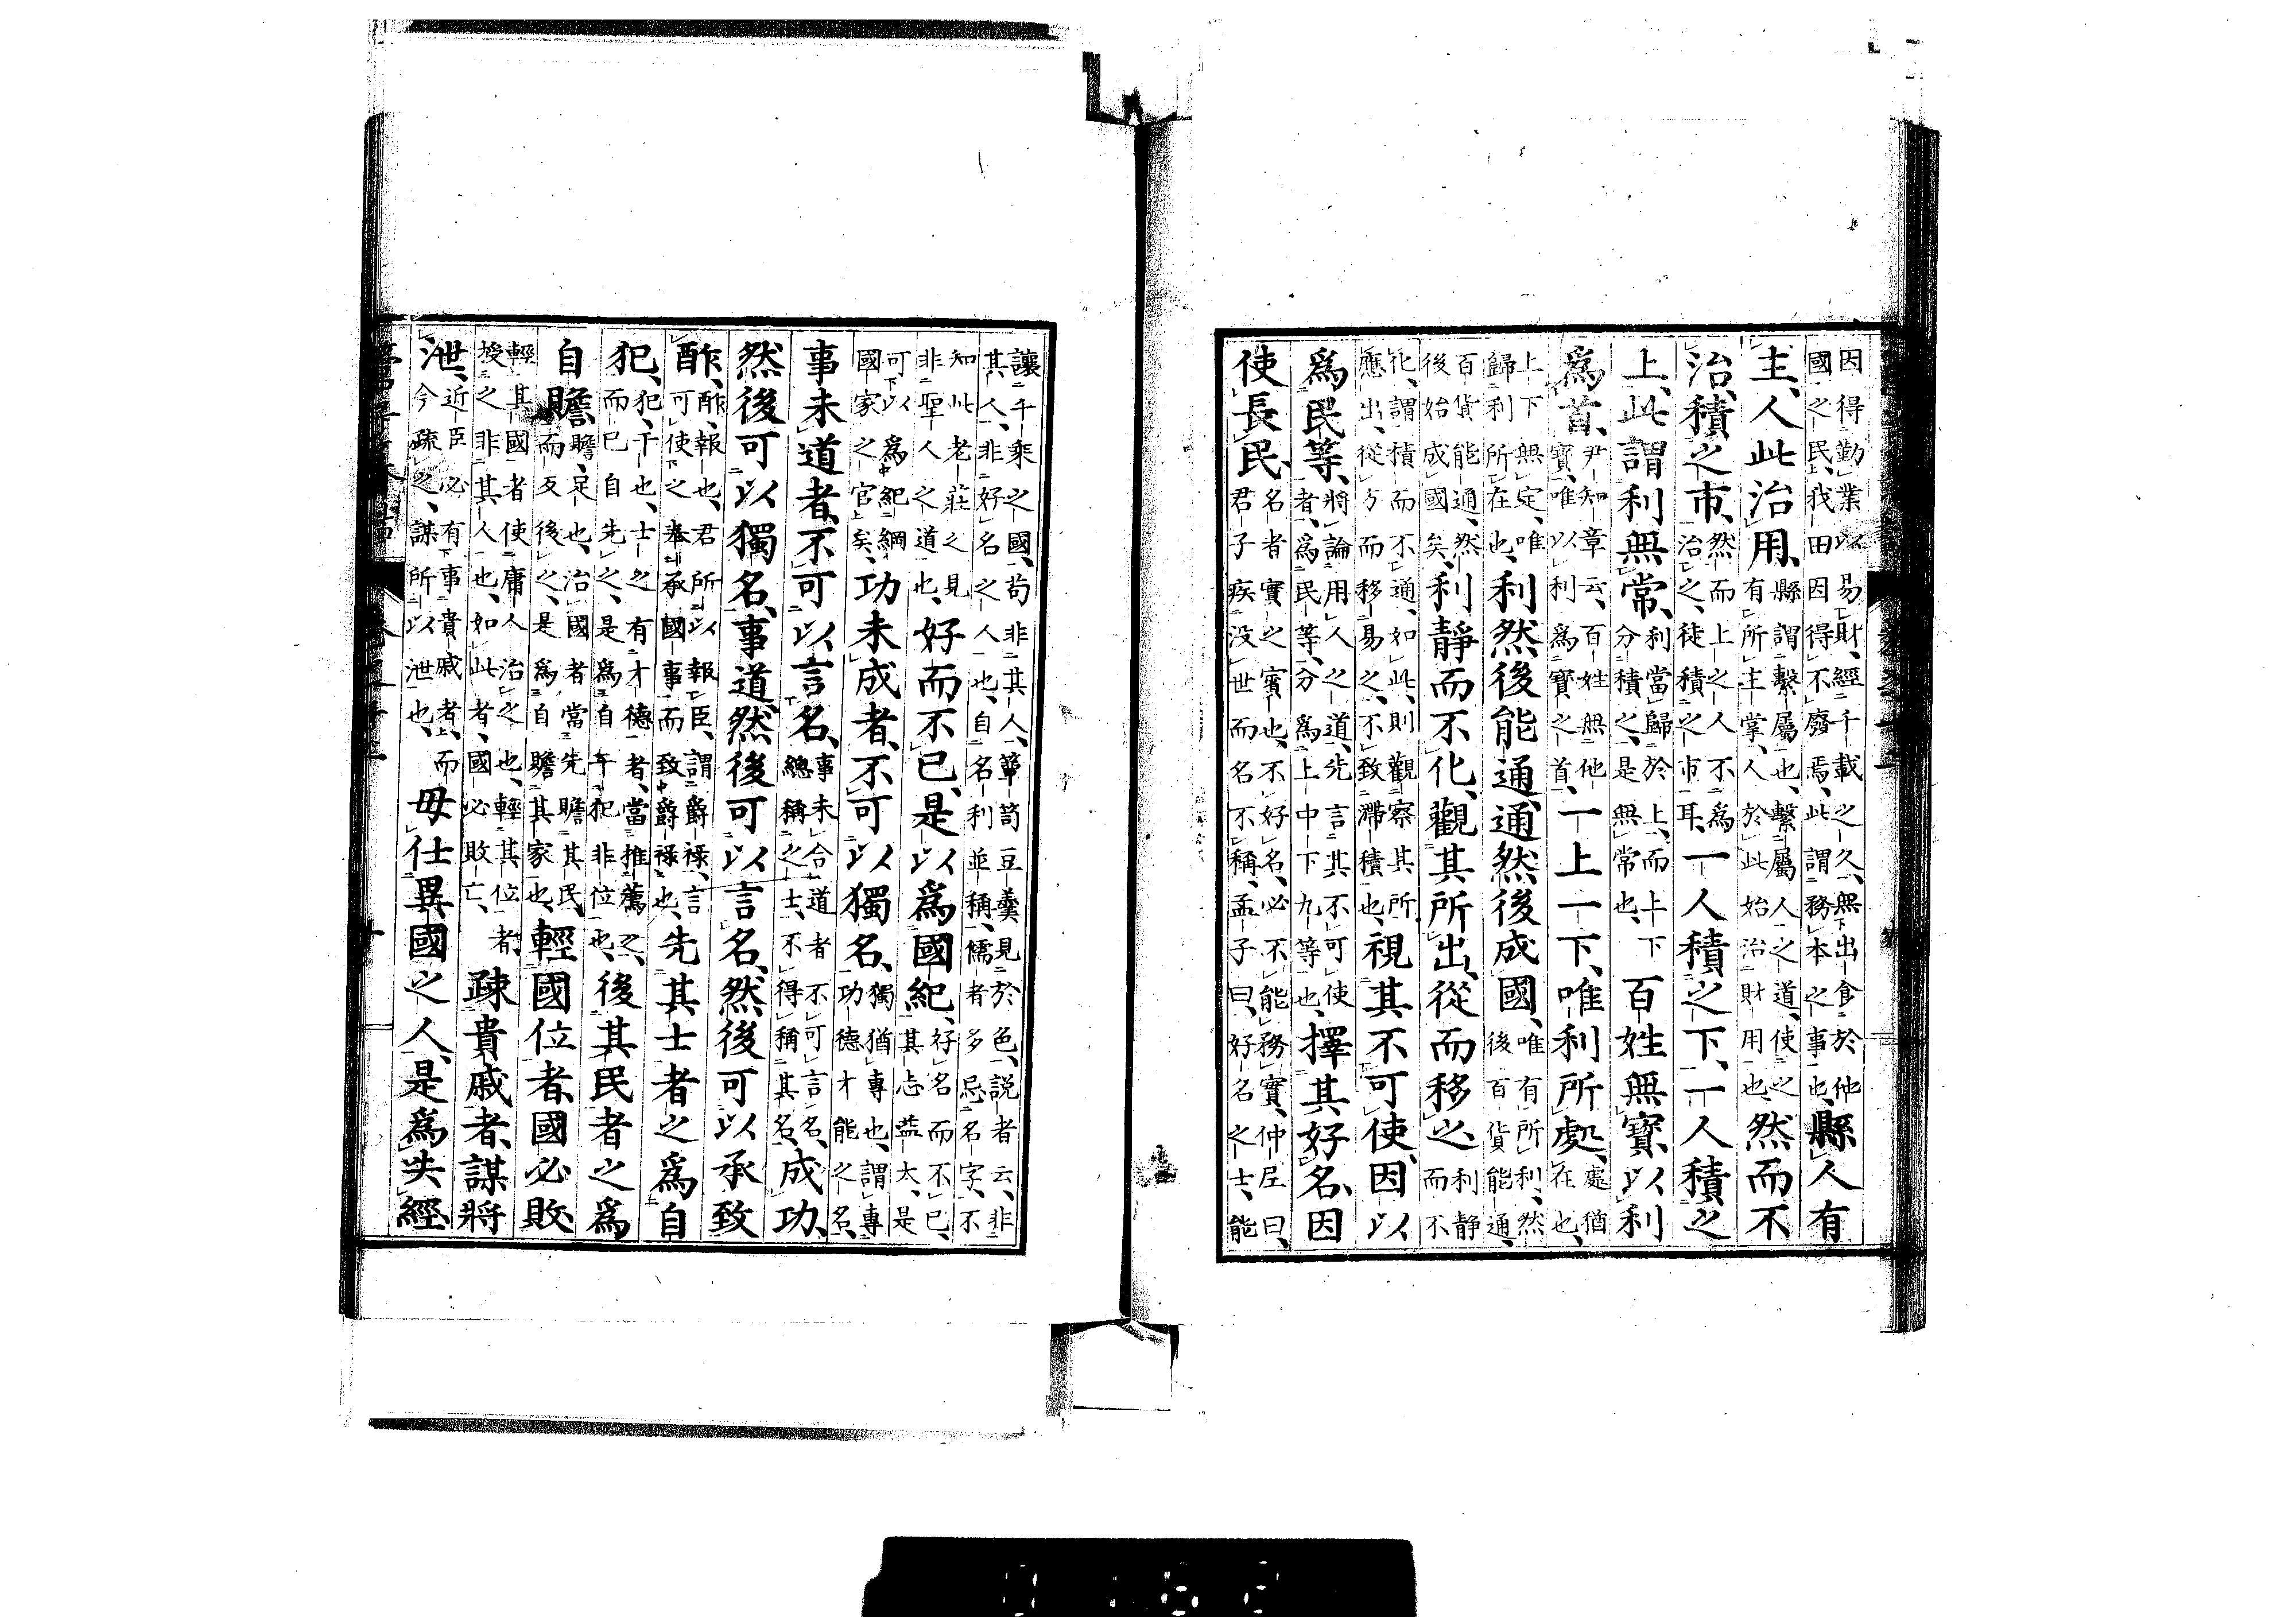 因得勤業以易財、經千載之久、無出食於他
國之民、我田因得不廢焉、此謂務本之事也、縣人有
主、人此治用、縣謂繫屬也、繫屬人之道、使之
有所主掌、人於此始治財用也、然而不
治、積之市、然而上之人不爲
治之、徒積之市耳、一人積之下、一人積之
上、此謂利無常、利當歸於上、而上下
分積之、是無常也、百姓無寶、以利
爲首、尹知章云、百姓無他
寶、唯以利爲寶之首、一上一下、唯利所處、處猶
在也、
上下無定、唯
歸利所在也、利然後能通、通然後成國、唯有所利、然
後百貨能通、
百貨能通、然
後始成國矣、利靜而不化、觀其所出、從而移之、利靜
而不
化、謂積而不通、如此、則觀察其所
應出、從方而移易之、不致滯積也、視其不可使、因以
爲民等、將論用人之道、先言其不可使
者、爲民等、分爲上中下九等也、擇其好名、因
使長民、名者實之賓也、不好名、必不能務實、仲尼曰、
君子疾没世而名不稱、孟子曰、好名之士、能
讓千乘之國、苟非其人、簞笥豆羹見於色、説者云、非
其人、非好名之人也、自名利並稱、儒者多忌名字、不
知此老莊之見
非聖人之道也、好而不已、是以爲國紀、好名而不已、
其志益大、是
可以爲紀綱
國家之官矣、功未成者、不可以獨名、獨猶專也、謂專
功德才能之名、
事未道者、不可以言名、事未合道者不可言名、
總稱之士、不得稱其名、成功、
然後可以獨名、事道、然後可以言名、然後可以承致
酢、酢、報也、君所以報臣、謂爵禄、言
可使之奉承國事而致爵禄也、先其士者之爲自
犯、犯、干也、士之有才德者、當推薦之、
而已自先之、是爲自干犯非位也、後其民者之爲
自贍、贍、足也、治國者當先贍其民、
而反後之、是爲自贍其家也、輕國位者、國必敗、
輕其國者使庸人治之也、輕其位者、
授之非其人也、如此者、國必敗亡、疎貴戚者、謀將
泄、近臣必有事貴戚者、而
今疏之、謀所以泄也、毋仕異國之人、是爲失經、